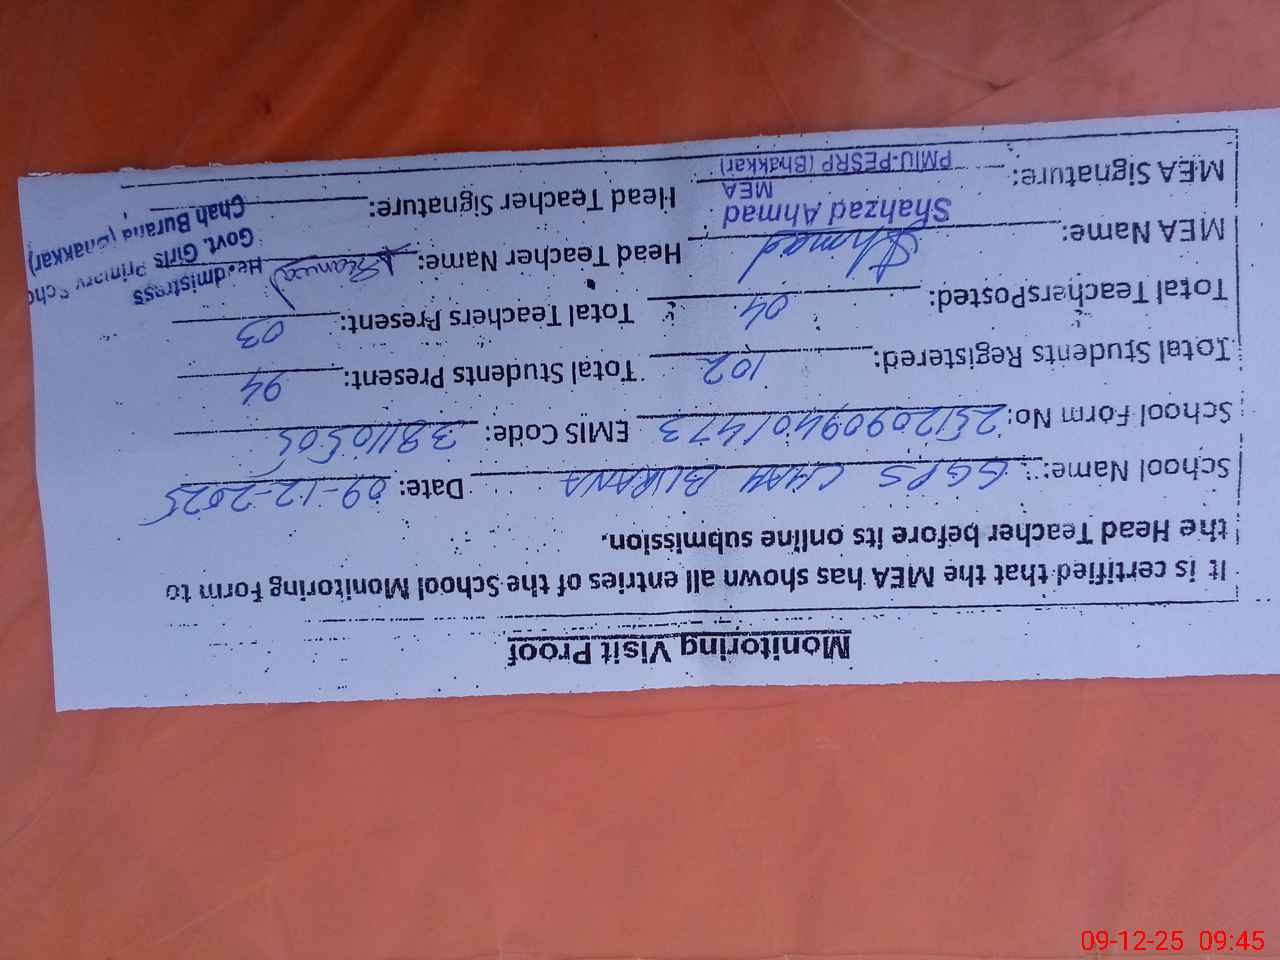 Monitoring Visit Proof
It is certified that the MEA has shown all entries of the School Monitoring Form to
the Head Teacher before its online submission.
School Name: GGPS CHAH BURANA Date: 09-12-2025
School Form No: 25120909401473 EMIS Code: 38110505
Total Students Registered: 102 Total Students Present: 94
Total Teachers Posted: 04 Total Teachers Present: 03
MEA Name: Ahmad Head Teacher Name:
Shahzad Ahmad
MEA
PMIU-PESRP (Bhakkar)
MEA Signature: Head Teacher Signature:
Headmistress
Govt. Girls Primary Scho
Chah Burana (Bhakkar)
09-12-25 09:45